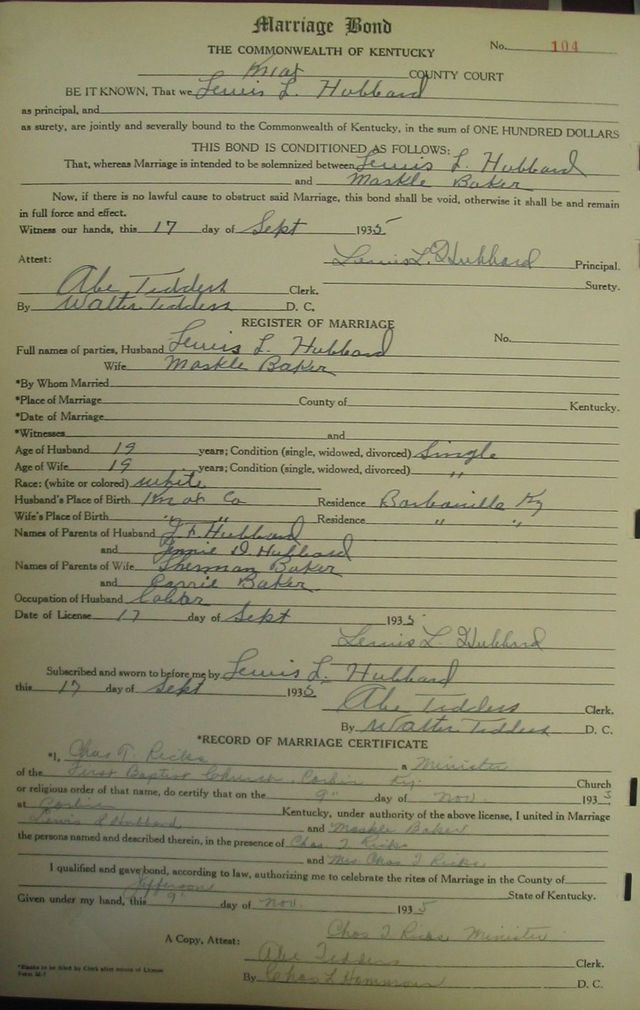 Marriage Bond
THE COMMONWEALTH OF KENTUCKY
No. 104
Knox COUNTY COURT
BE IT KNOWN, That we Lewis L. Hubbard
as principal, and
as surety, are jointly and severally bound to the Commonwealth of Kentucky, in the sum of ONE HUNDRED DOLLARS
THIS BOND IS CONDITIONED AS FOLLOWS:
That, whereas Marriage is intended to be solemnized between Lewis L. Hubbard
and Maskle Baker
Now, if there is no lawful cause to obstruct said Marriage, this bond shall be void, otherwise it shall be and remain
in full force and effect.
Witness our hands, this 17 day of Sept 1935
Attest: Lewis L. Hubbard Principal.
Abe Tedders Clerk. Surety.
By Walter Tedders D. C.
REGISTER OF MARRIAGE
No.
Full names of parties, Husband Lewis L. Hubbard
Wife Maskle Baker
*By Whom Married
*Place of Marriage County of Kentucky.
*Date of Marriage
*Witnesses and
Age of Husband 19 years; Condition (single, widowed, divorced) Single
Age of Wife 19 years; Condition (single, widowed, divorced) "
Race: (white or colored) white
Husband's Place of Birth Knox Co Residence Barbourville Ky
Wife's Place of Birth " " Residence " "
Names of Parents of Husband J. F. Hubbard
and Jennie D. Hubbard
Names of Parents of Wife Sherman Baker
and Carrie Baker
Occupation of Husband
Date of License 17 day of Sept 1935
Lewis L. Hubbard
Subscribed and sworn to before me by Lewis L. Hubbard
this 17 day of Sept 1935
Abe Tedders Clerk.
By Walter Tedders D. C.
*RECORD OF MARRIAGE CERTIFICATE
*I, Chas T. Ricks a Minister
of the First Baptist Church, Corbin Ky. Church
or religious order of that name, do certify that on the 9" day of Nov. 1935
at Corbin Kentucky, under authority of the above license, I united in Marriage
Lewis L Hubbard and Maskle Baker
the persons named and described therein, in the presence of Chas T Ricks
and Mrs. Chas T Ricks
I qualified and gave bond, according to law, authorizing me to celebrate the rites of Marriage in the County of
Jefferson State of Kentucky.
Given under my hand, this 9" day of Nov. 1935
Chas T Ricks Minister
A Copy, Attest: Abe Tedders Clerk.
By Chas L Hammons D. C.
*Blanks to be filled by Clerk after return of License
Form M-7